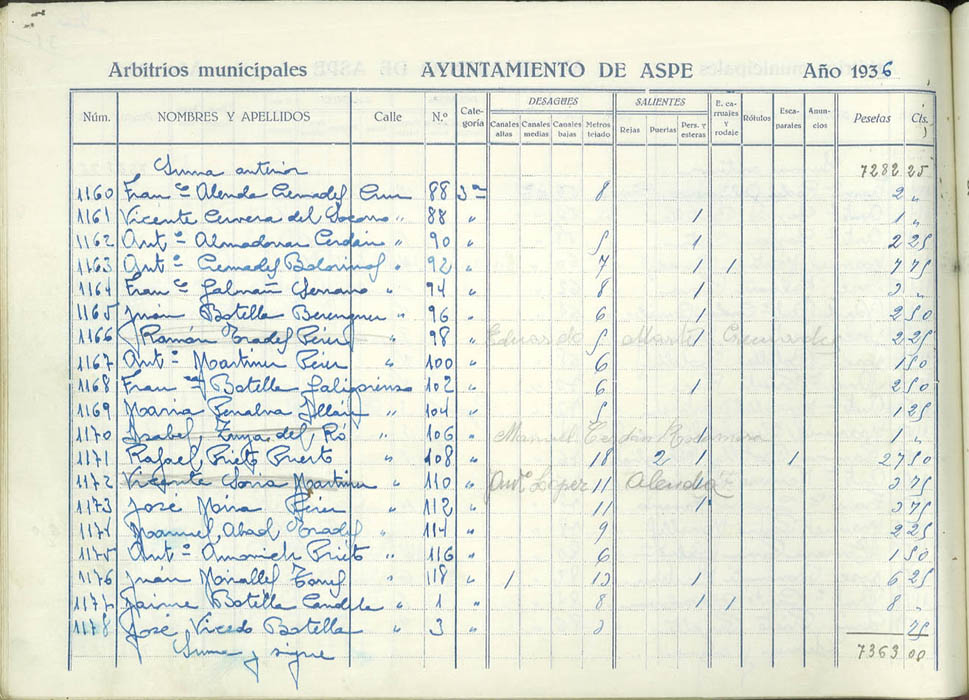 Arbitrios municipales AYUNTAMIENTO DE ASPE Año 1936
Núm. NOMBRES Y APELLIDOS Calle N.º Categoría DESAGUES SALIENTES E. carruajes y rodaje Rótulos Escaparates Anuncios Pesetas Cts.
Canales altas Canales medias Canales bajas Metros tejado Rejas Puertas Pers. y esteras
Suma anterior 7282 25
1160 Fran.co Alenda Cremades Cruz 88 3ª 8 2 "
1161 Vicente Cervera del Socorro " 88 " 1 1 "
1162 Ant.º Almodovar Cerdán " 90 " 5 1 2 25
1163 Ant.º Cremades Bolorinos " 92 " 7 1 1 7 75
1164 Fran.co Galvañ Serrano " 94 " 8 1 3 "
1165 Juán Botella Berenguer " 96 " 6 1 2 50
1166 Ramón Prades Pérez " 98 " Eduardo 5 1 2 25
1167 Ant.º Martinez Pérez " 100 " 6 1 50
1168 Fran.co Botella " 102 " 6 1 2 50
1169 Maria Penalva Illán " 104 " 5 1 25
1170 Isabel del Ró " 106 " Manuel Cerdán 1 1 "
1171 Rafael Prieto Puerto " 108 " 18 2 1 1 27 50
1172 Vicente Soria Martinez " 110 " Ant.º López 11 Alenda 1 3 75
1173 José Mira Pérez " 112 " 11 1 3 75
1174 Manuel Abad Prades " 114 " 9 2 25
1175 Ant.º Amorich Prieto " 116 " 6 1 50
1176 Juán Miralles Torres " 118 " 1 13 1 6 25
1177 Jaime Botella Candela " 1 " 8 1 1 8 "
1178 José Vicedo Botella " 3 " 3 75
Suma y sigue 7363 00